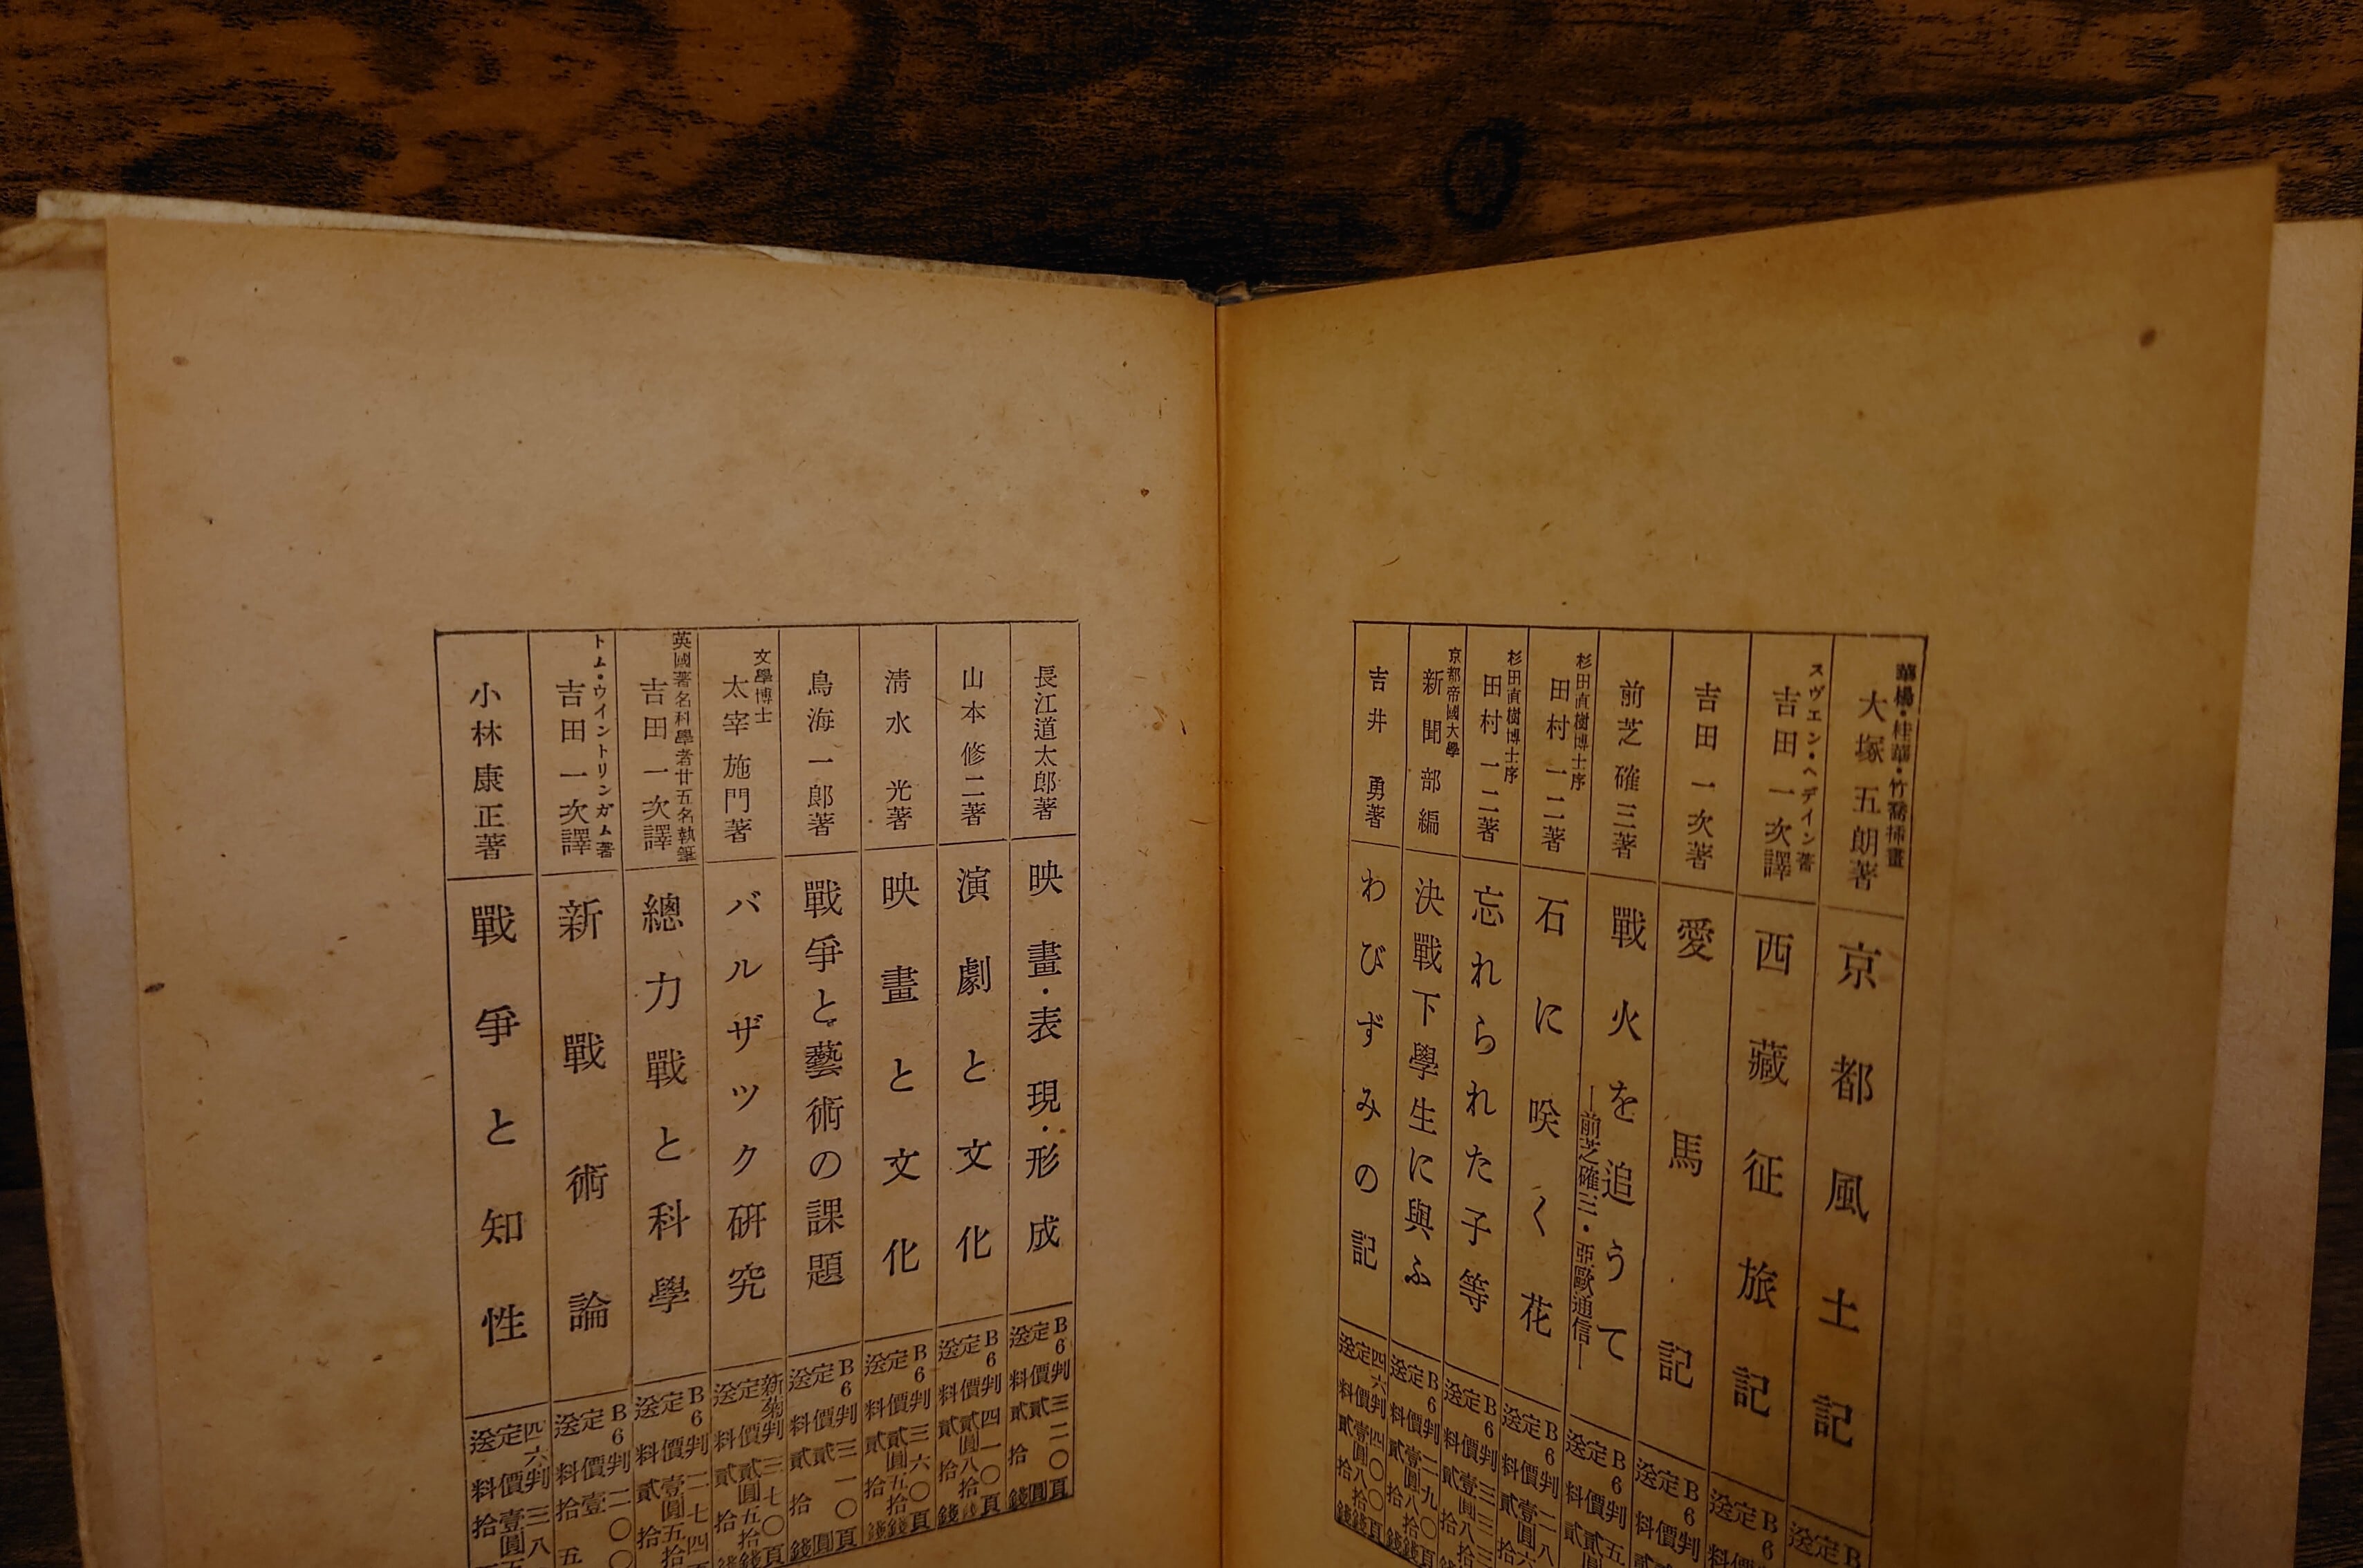 華楊・桂華・竹喬挿畫
大塚五朗著
京都風土記
B
定
送
スヴエン・ヘデイン著
吉田一次譯
西藏征旅記
B6
定價
送料
吉田一次著
愛馬記
B6判
定價
送料
前芝確三著
戰火を追うて
―前芝確三・亞歐通信―
B6判五
定價貳圓
送料貳
杉田直樹博士序
田村一二著
石に咲く花
B6判二八
定價壹圓六
送料貳拾
杉田直樹博士序
田村一二著
忘れられた子等
B6判三三
定價壹圓八拾
送料貳拾錢
京都帝國大學
新聞部編
決戰下學生に與ふ
B6判二九〇頁
定價壹圓八拾錢
送料貳拾錢
吉井勇著
わびずみの記
四六判四〇〇頁
定價壹圓八拾錢
送料貳拾錢
長江道太郎著
映畫・表現・形成
B6判三二〇頁
定價貳圓
送料貳拾錢
山本修二著
演劇と文化
B6判四一〇頁
定價貳圓八拾錢
送料貳拾錢
淸水光著
映畫と文化
B6判三六〇頁
定價貳圓五拾錢
送料貳拾錢
鳥海一郎著
戰爭と藝術の課題
B6判三一〇頁
定價貳圓
送料貳拾錢
文學博士
太宰施門著
バルザック硏究
新菊判三七〇頁
定價貳圓五拾錢
送料貳拾錢
英國著名科學者廿五名執筆
吉田一次譯
總力戰と科學
B6判二七四頁
定價壹圓五拾
送料貳拾
トム・ウイントリンガム著
吉田一次譯
新戰術論
B6判二〇〇
定價壹
送料拾五
小林康正著
戰爭と知性
四六判三八
定價壹圓五
送料拾